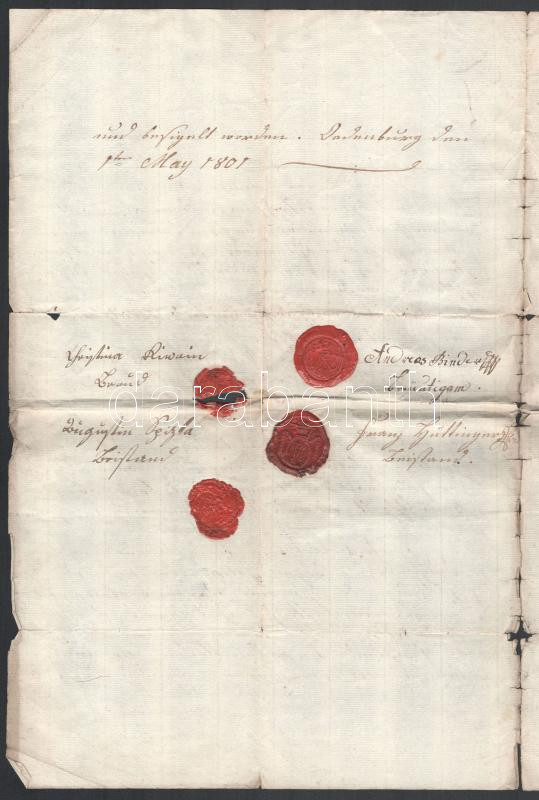 und besigelt worden. Oedenburg den
1ten May 1801
Christina
Braud
Andreas Binder
Bräutigam.
Augustin Spitzla
Beistand
Franz Hüttinger
Beistand.
darabanth